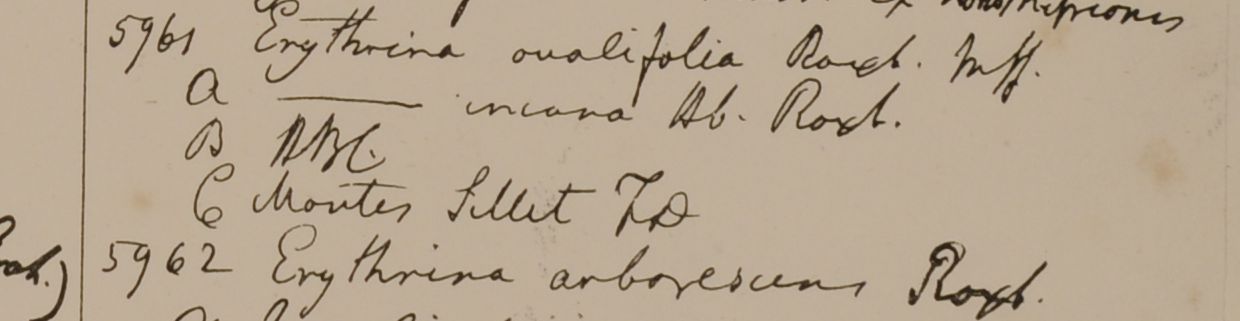 5961 Erythrina ovalifolia Roxb. Mss.
a ——— incana Hb. Roxb.
B HBC.
C Montes Sillet FD
5962 Erythrina arborescens Roxb.